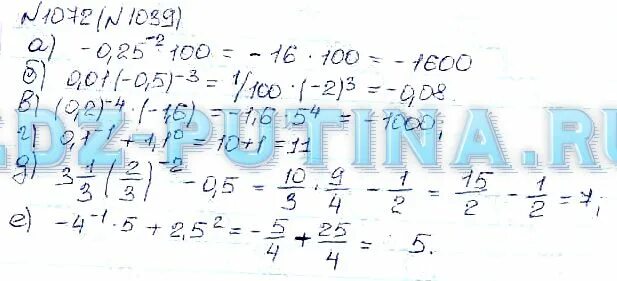 N1072(N1039)
а) -0,25⁻²·100 = -16·100 = -1600
б) 0,01(-0,5)⁻³ = 1/100·(-2)³ = -0,08.
в) (0,2)⁻⁴·(-1,6) = -1,6·5⁴ = -1000;
г) 0,1⁻¹ + 1,1⁰ = 10+1 = 11
д) 3 1/3 (2/3)⁻² - 0,5 = 10/3 · 9/4 - 1/2 = 15/2 - 1/2 = 7;
е) -4⁻¹·5 + 2,5² = -5/4 + 25/4 = 5.
LDZ-PUTINA.RU